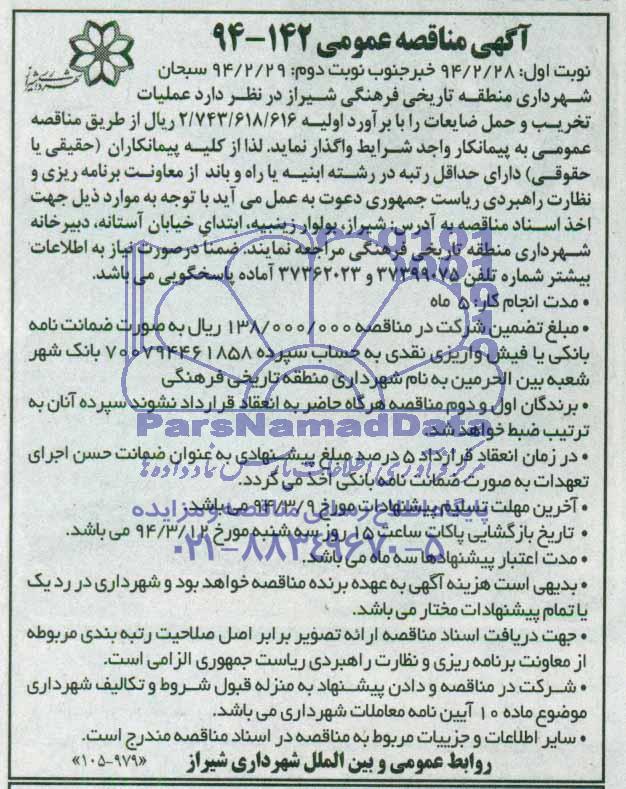 آگهی مناقصه عمومی ۱۴۲-۹۴
شهرداری شیراز
نوبت اول: ۹۴/۲/۲۸ خبرجنوب نوبت دوم: ۹۴/۲/۲۹ سبحان
شهرداری منطقه تاریخی فرهنگی شیراز در نظر دارد عملیات
تخریب و حمل ضایعات را با برآورد اولیه ۲/۷۴۳/۶۱۸/۶۱۶ ریال از طریق مناقصه
عمومی به پیمانکار واجد شرایط واگذار نماید. لذا از کلیه پیمانکاران (حقیقی یا
حقوقی) دارای حداقل رتبه در رشته ابنیه یا راه و باند از معاونت برنامه ریزی و
نظارت راهبردی ریاست جمهوری دعوت به عمل می آید با توجه به موارد ذیل جهت
اخذ اسناد مناقصه به آدرس: شیراز، بولوار زینبیه، ابتدای خیابان آستانه، دبیرخانه
شهرداری منطقه تاریخی فرهنگی مراجعه نمایند. ضمنا درصورت نیاز به اطلاعات
بیشتر شماره تلفن ۳۷۳۹۹۰۷۵ و ۳۷۳۶۲۰۲۳ آماده پاسخگویی می باشد.
• مدت انجام کار: ۵ ماه
• مبلغ تضمین شرکت در مناقصه ۱۳۸/۰۰۰/۰۰۰ ریال به صورت ضمانت نامه
بانکی یا فیش واریزی نقدی به حساب سپرده ۷۰۰۷۹۴۴۶۱۸۵۸ بانک شهر
شعبه بین الحرمین به نام شهرداری منطقه تاریخی فرهنگی
• برندگان اول و دوم مناقصه هرگاه حاضر به انعقاد قرارداد نشوند سپرده آنان به
ترتیب ضبط خواهد شد.
ParsNamadData
• در زمان انعقاد قرارداد ۵ درصد مبلغ پیشنهادی به عنوان ضمانت حسن اجرای
تعهدات به صورت ضمانت نامه بانکی اخذ می گردد.
• آخرین مهلت تسلیم پیشنهادات مورخ ۹۴/۳/۹ می باشد.
• تاریخ بازگشایی پاکات ساعت ۱۵ روز سه شنبه مورخ ۹۴/۳/۱۲ می باشد.
۰۲۱-۸۸۳۴۹۶۷۰-۵
• مدت اعتبار پیشنهادها سه ماه می باشد.
• بدیهی است هزینه آگهی به عهده برنده مناقصه خواهد بود و شهرداری در رد یک
یا تمام پیشنهادات مختار می باشد.
• جهت دریافت اسناد مناقصه ارائه تصویر برابر اصل صلاحیت رتبه بندی مربوطه
از معاونت برنامه ریزی و نظارت راهبردی ریاست جمهوری الزامی است.
• شرکت در مناقصه و دادن پیشنهاد به منزله قبول شروط و تکالیف شهرداری
موضوع ماده ۱۰ آیین نامه معاملات شهرداری می باشد.
• سایر اطلاعات و جزییات مربوط به مناقصه در اسناد مناقصه مندرج است.
روابط عمومی و بین الملل شهرداری شیراز «۹۷۹-۱۰۵»